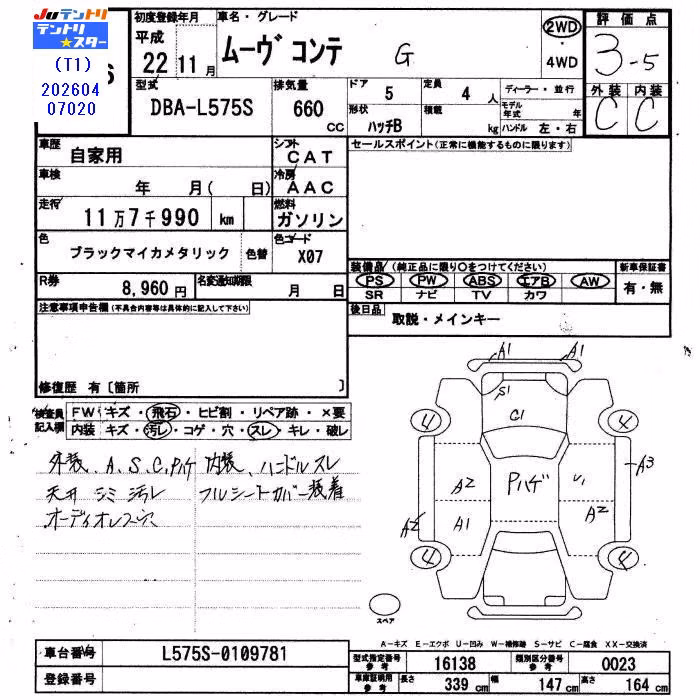 Juテントリ
テントリ★スター
(T1)
202604
07020
S
初度登録年月
平成
22年 11月
車名・グレード
ムーヴ コンテ G
2WD
4WD
評価点
3-5
外装 内装
C C
型式
DBA-L575S
排気量
660
CC
ドア
5
定員
4 人
形状
ハッチB
積載
kg
ディーラー・並行
モデル年式 年
ハンドル 左・右
車歴
自家用
シフト
CAT
車検
年 月( 日)
冷房
AAC
走行
11万7千990 km
燃料
ガソリン
色
ブラックマイカメタリック
色替
色コード
X07
R券
8,960円
名変通知期限
月 日
セールスポイント(正常に機能するものに限ります)
装備品 (純正品に限り○をつけてください)
PS PW ABS エアB AW
SR ナビ TV カワ
新車保証書
有・無
後日品
取説・メインキー
注意事項申告欄 (不具合内容等は具体的に記入して下さい)
修復歴 有〔箇所 〕
検査員記入欄
FW キズ・飛石・ヒビ割・リペア跡・×要
内装 キズ・汚レ・コゲ・穴・スレ・キレ・破レ
外装、A、S、C、Pハゲ 内装、ハンドルスレ
天井 シミ 汚レ フルシートカバー装着
オーディオレス
A1 A1
S1
C1
4 4
A3
A2 Pハゲ U1
A2 A1 A2
4 4
スペア
A-キズ E-エクボ U-凹み W-補修跡 S-サビ C-腐食 XX-交換済
車台番号
L575S-0109781
登録番号
型式指定番号 参考
16138
類別区分番号 参考
0023
車庫証明用 参考
長さ 339 cm 幅 147 cm 高さ 164 cm